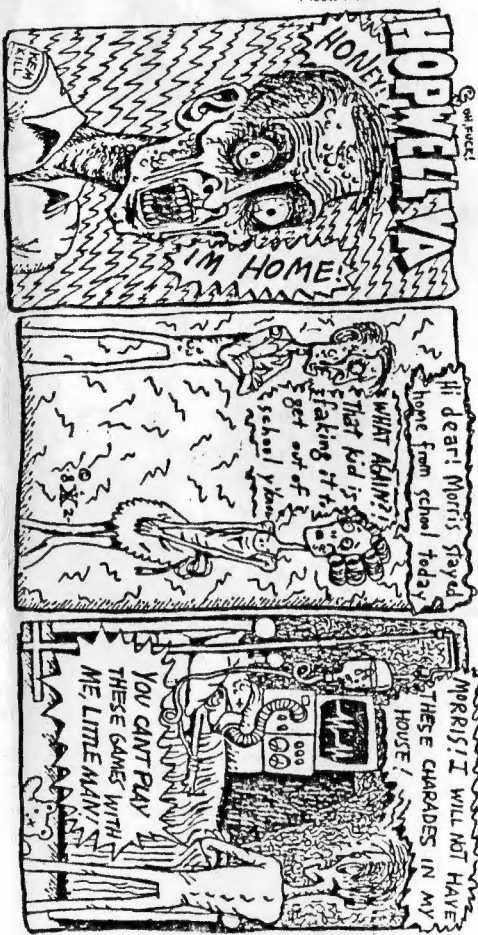 HOPWELL VA
© OH FUCK!
HONEY!
I'M HOME!
KEM
KILL
Hi dear! Morris stayed
home from school today
WHAT AGAIN?!
That kid is
faking it to
get out of
school y'know
MORRIS! I WILL NOT HAVE
THESE CHARADES IN MY
HOUSE!
YOU CAN'T PLAY
THESE GAMES WITH
ME, LITTLE MAN!